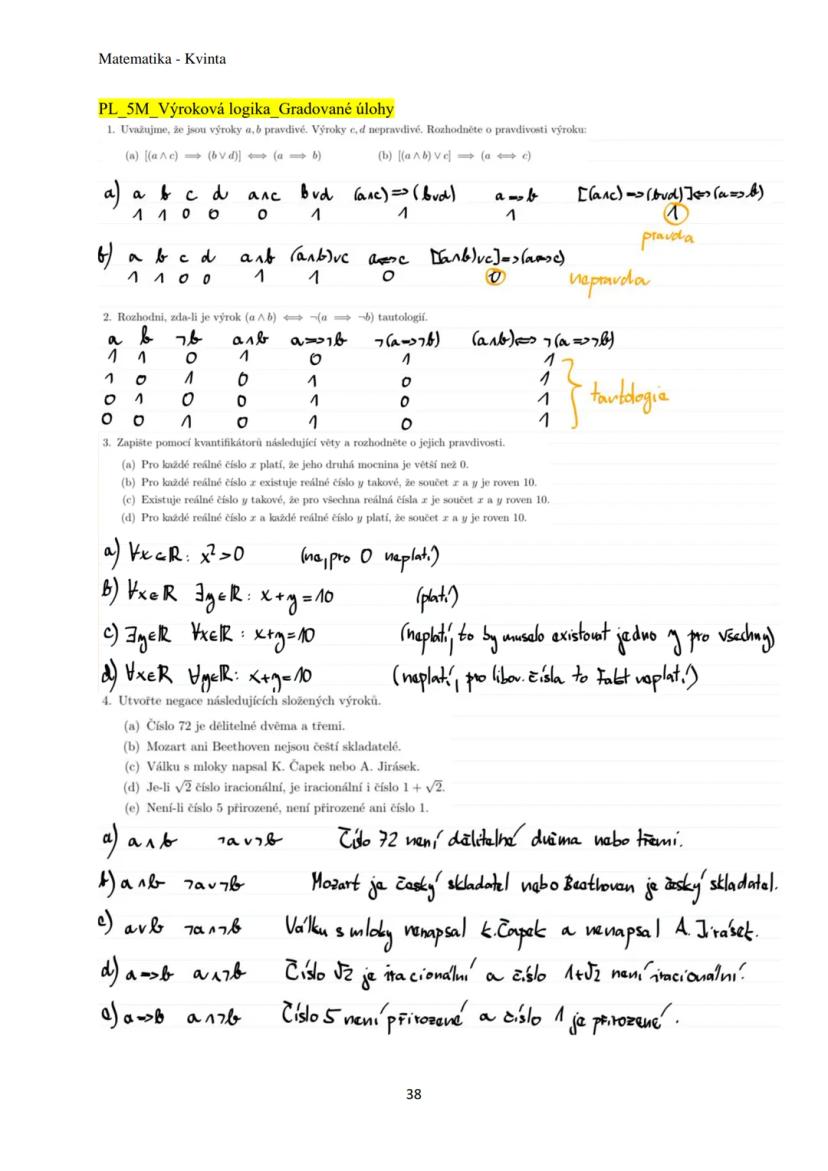 Matematika - Kvinta
PL_5M_Výroková logika_Gradované úlohy
1. Uvažujme, že jsou výroky a, b pravdivé. Výroky c, d nepravdivé. Rozhodněte o pravdivosti výroku:
(a) [(a ∧ c) ⟹ (b ∨ d)] ⟺ (a ⟹ b) (b) [(a ∧ b) ∨ c] ⟹ (a ⟺ c)
a) a b c d a∧c b∨d (a∧c)=>(b∨d) a=>b [(a∧c)=>(b∨d)]<=>(a=>b)
1 1 0 0 0 1 1 1 1
pravda
b) a b c d a∧b (a∧b)∨c a<=>c [(a∧b)∨c]=>(a<=>c)
1 1 0 0 1 1 0 0 nepravda
2. Rozhodni, zda-li je výrok (a ∧ b) ⟺ ¬(a ⟹ ¬b) tautologií.
a b ¬b a∧b a=>¬b ¬(a=>¬b) (a∧b)<=>¬(a=>¬b)
1 1 0 1 0 1 1
1 0 1 0 1 0 1
0 1 0 0 1 0 1 tautologie
0 0 1 0 1 0 1
3. Zapište pomocí kvantifikátorů následující věty a rozhodněte o jejich pravdivosti.
(a) Pro každé reálné číslo x platí, že jeho druhá mocnina je větší než 0.
(b) Pro každé reálné číslo x existuje reálné číslo y takové, že součet x a y je roven 10.
(c) Existuje reálné číslo y takové, že pro všechna reálná čísla x je součet x a y roven 10.
(d) Pro každé reálné číslo x a každé reálné číslo y platí, že součet x a y je roven 10.
a) ∀x∈ℝ: x²>0 (ne, pro 0 neplatí)
b) ∀x∈ℝ ∃y∈ℝ: x+y=10 (platí)
c) ∃y∈ℝ ∀x∈ℝ: x+y=10 (neplatí, to by muselo existovat jedno y pro všechny)
d) ∀x∈ℝ ∀y∈ℝ: x+y=10 (neplatí, pro libov. čísla to fakt neplatí)
4. Utvořte negace následujících složených výroků.
(a) Číslo 72 je dělitelné dvěma a třemi.
(b) Mozart ani Beethoven nejsou čeští skladatelé.
(c) Válku s mloky napsal K. Čapek nebo A. Jirásek.
(d) Je-li √2 číslo iracionální, je iracionální i číslo 1 + √2.
(e) Není-li číslo 5 přirozené, není přirozené ani číslo 1.
a) a∧b ¬a∨¬b Číslo 72 není dělitelné dvěma nebo třemi.
b) a∧b ¬a∨¬b Mozart je český skladatel nebo Beethoven je český skladatel.
c) a∨b ¬a∧¬b Válku s mloky nenapsal K. Čapek a nenapsal A. Jirásek.
d) a=>b a∧¬b Číslo √2 je iracionální a číslo 1+√2 není iracionální.
e) a=>b a∧¬b Číslo 5 není přirozené a číslo 1 je přirozené.
38